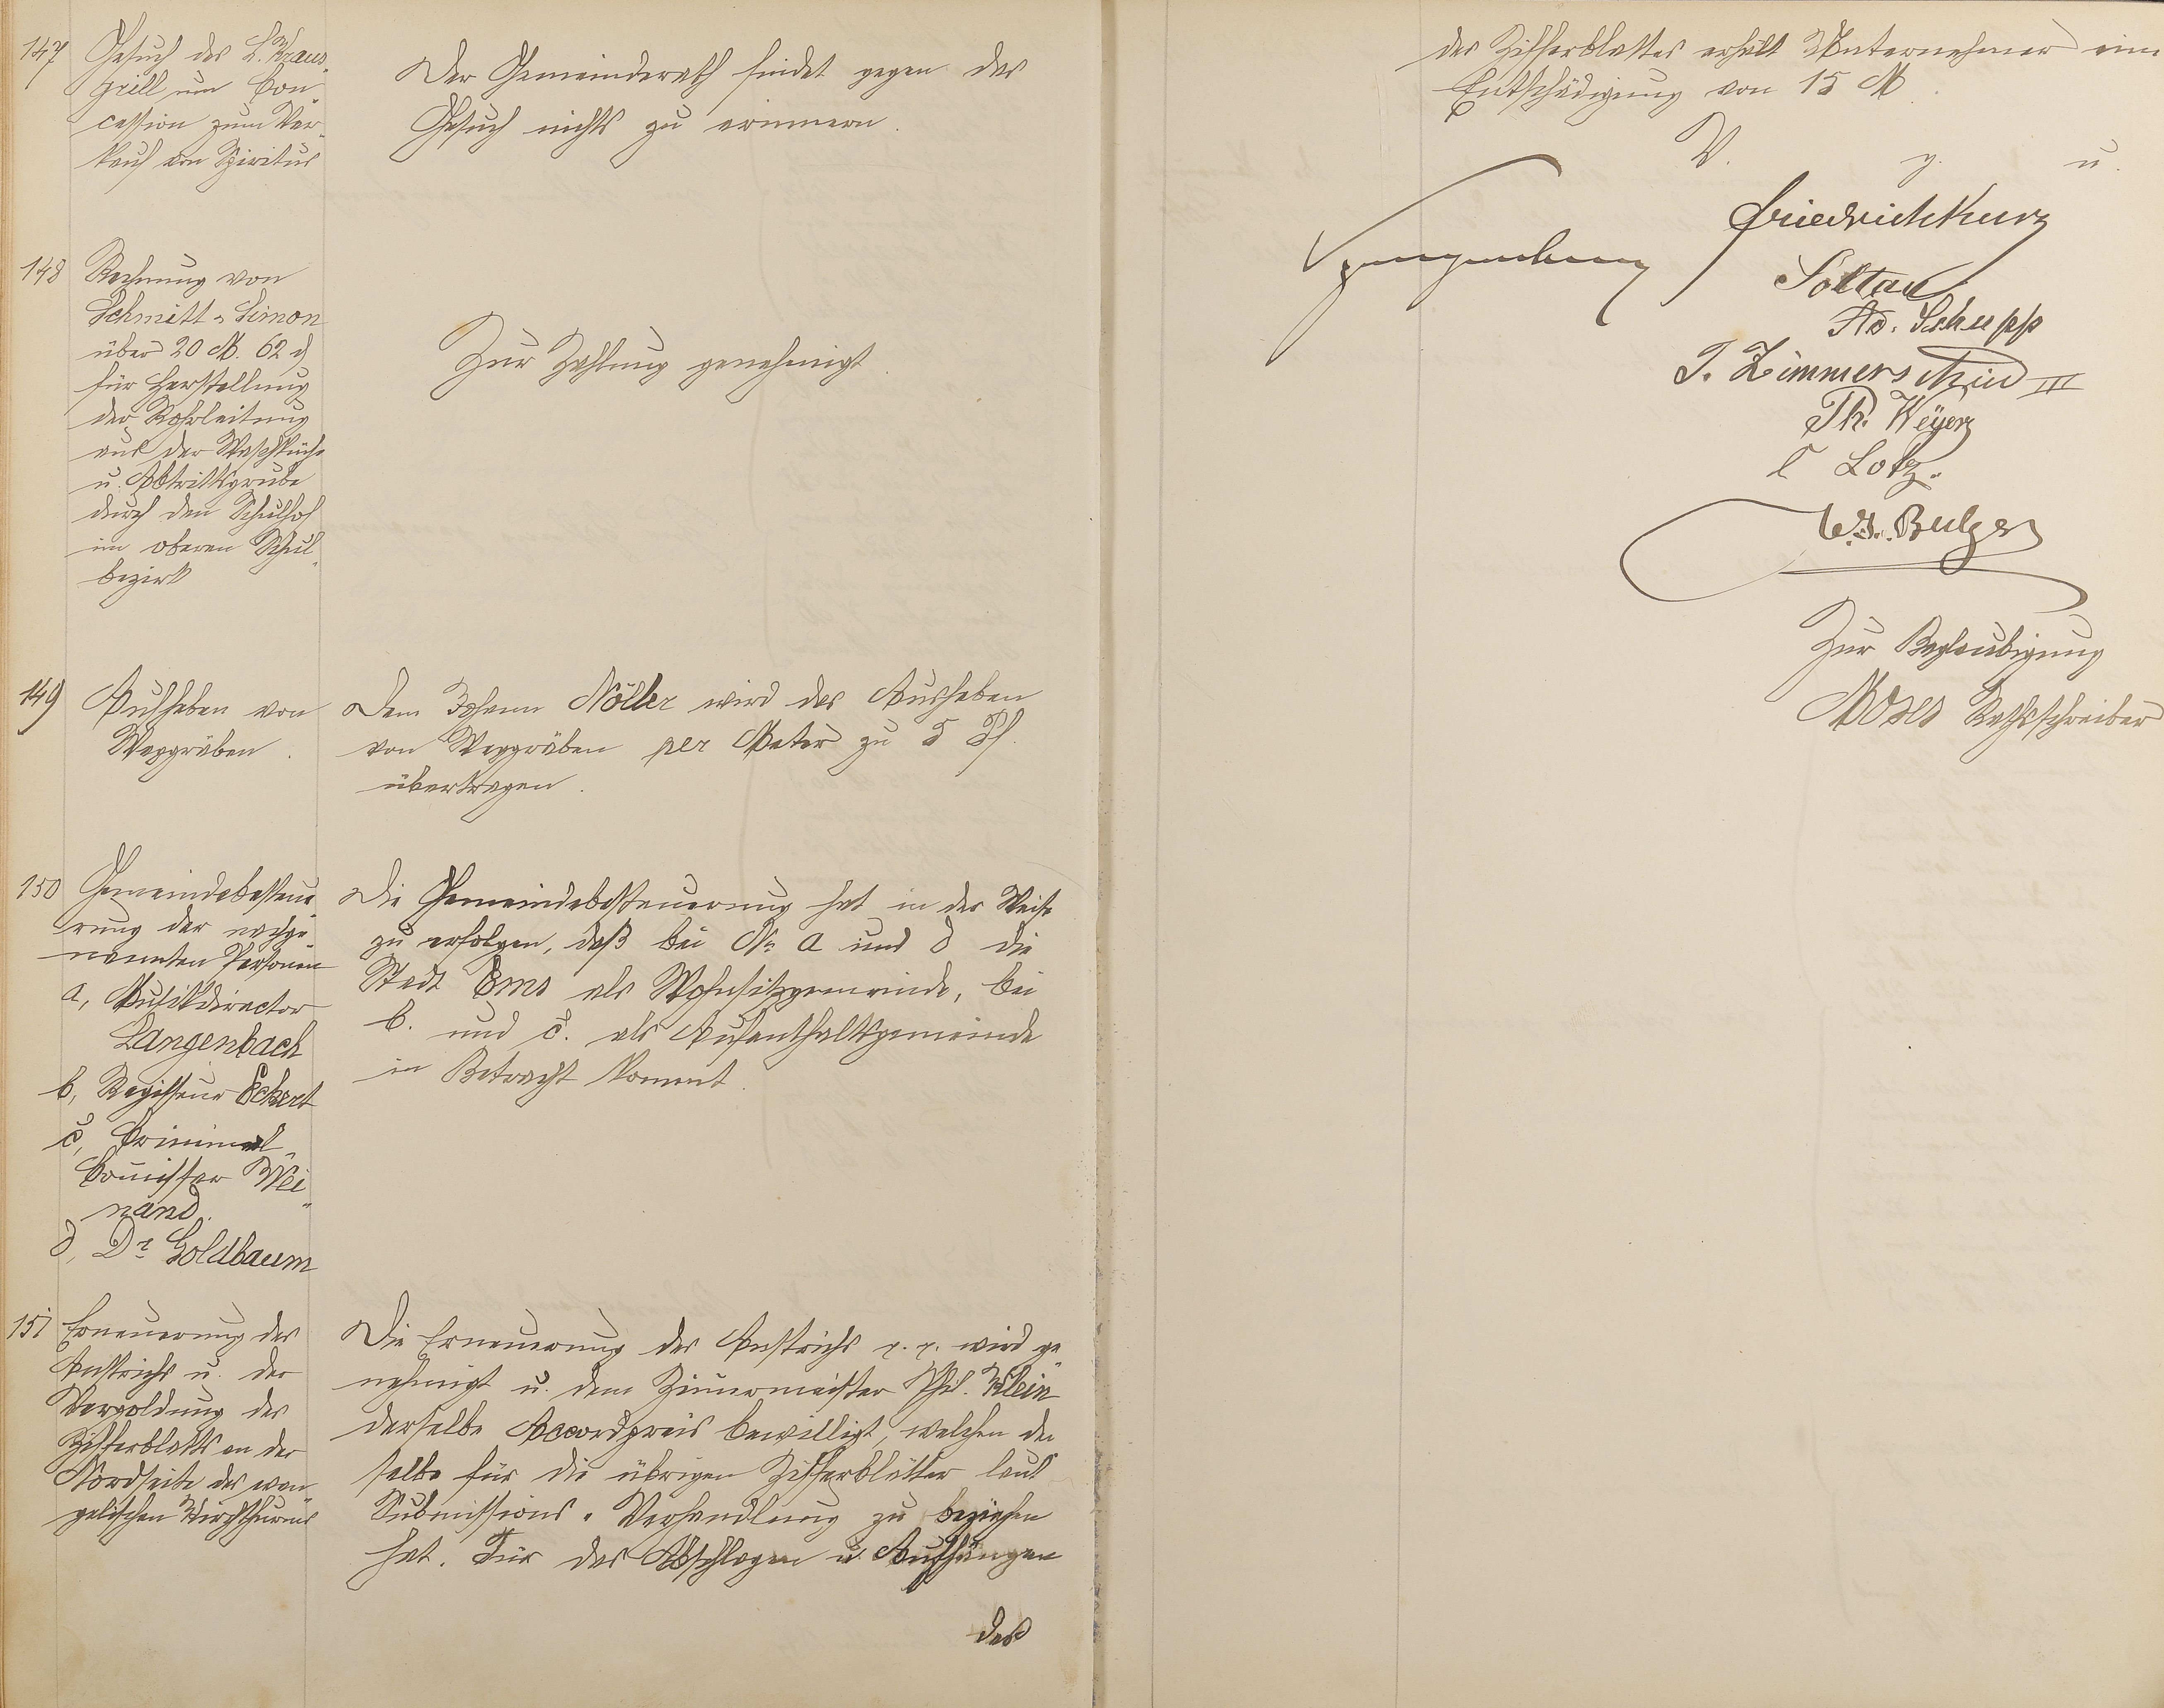 147
Gesuch des L. Kraus-
grill um Con-
cession zum Ver-
kauf von Spiritus
Der Gemeinderath findet gegen das
Gesuch nichts zu erinnern.
148
Rechnung von
Schmitt-Simon
über 20 M. 62 ₰
für Herstellung
der Rohrleitung
aus der Waschküche
u. Abtrittsgrube
durch den Schulhof
im oberen Schul-
bezirk
Zur Zahlung genehmigt.
149
Ausheben von
Weggräben.
Dem Johann Nöller wird das Ausheben
von Weggräben per Meter zu 5 Pf.
übertragen.
150
Gemeindebesteue-
rung der nachge-
nannten Personen
a, Musikdirector
Langenbach
b, Regisseur Eckert
c, Criminal-
Comissar Wei-
nand.
d, Dr Goldbaum
Die Gemeindebesteuerung hat in der Weise
zu erfolgen, daß bei No a und d die
Stadt Ems als Wohnsitzgemeinde, bei
b. und c. als Aufenthaltsgemeinde
in Betracht kommt.
151
Erneuerung des
Anstrichs u. der
Vergoldung des
Zifferblatts an der
Nordseite des evan-
gelischen Kirchthurms
Die Erneuerung des Anstrichs p. p. wird ge-
nehmigt u. dem Zimermeister Phil. Klein
derselbe Accordpreis bewilligt, welchen der
selbe für die übrigen Zifferblätter laut
Submissions-Verhandlung zu beziehen
hat. Für das Abschlagen u. Aufhängen
des
des Zifferblattes erhält Unternehmer eine
Entschädigung von 15 M.
V. g. u.
Friedrich Kurz
Spangenberg
Soltau
Ad. Schupp
J. Zimmerschied III
Th. Weyer
C Lotz.
Zur Beglaubigung
Moses Rathsschreiber